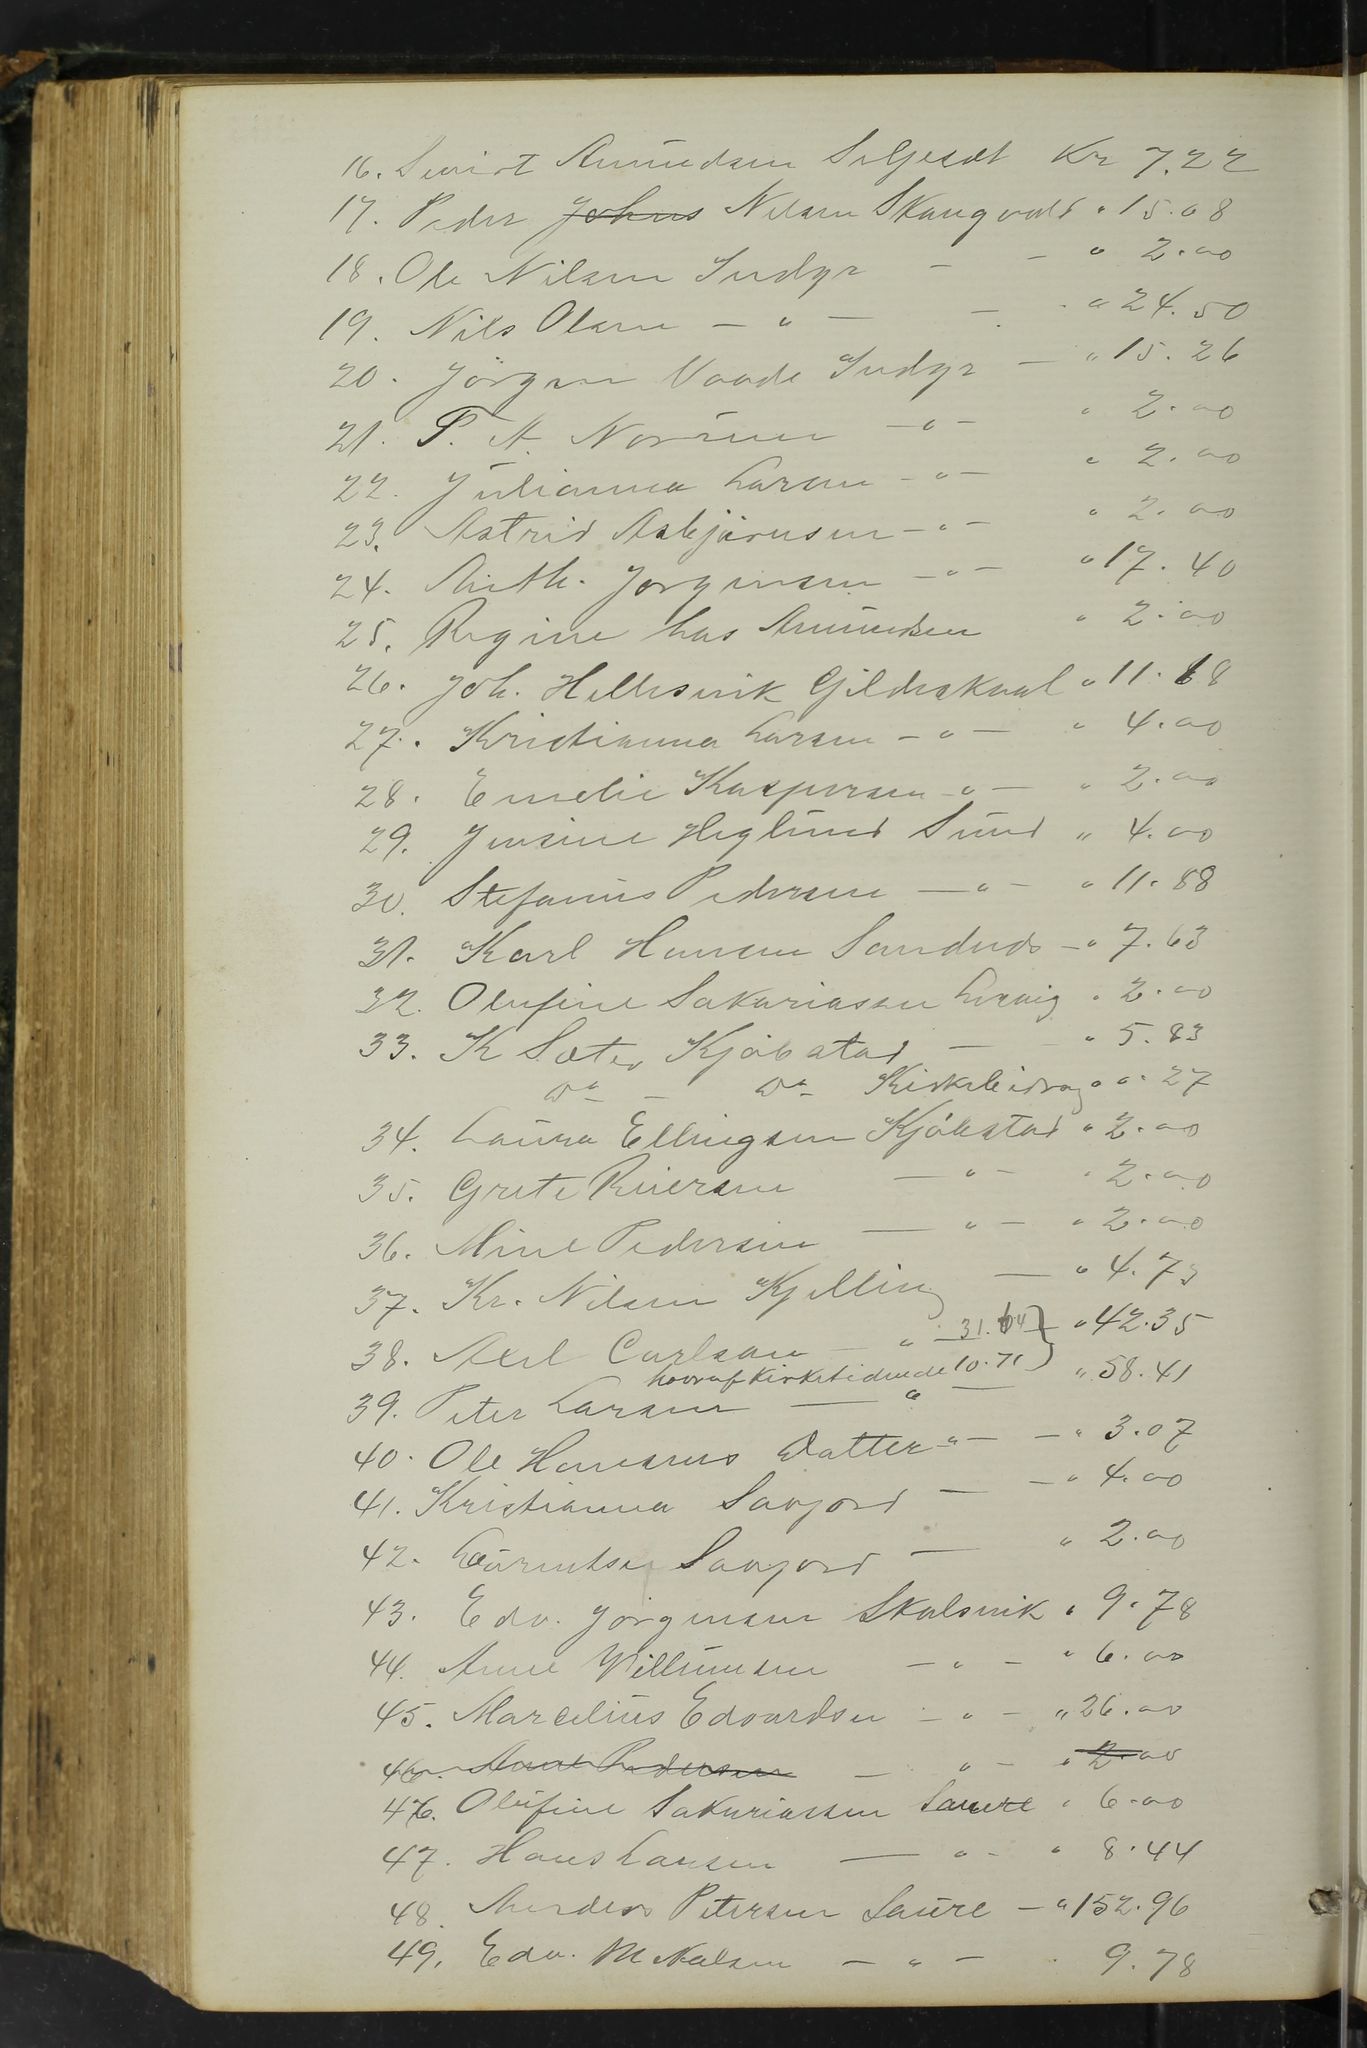 16. Amundsen Seljeset Kr 7.22
17. Peder Johns Nilsen Skaugvold " 15.08
18. Ole Nilsen Indyr - - " 2.00
19. Nils Olsen - " - - " 24.50
20. Jørgen Vaade Indyr - " 15.26
21. P. A. Norum - " - " 2.00
22. Julianna Larsen - " - " 2.00
23. Astrid Asbjørnsen - " - " 2.00
24. Meth. Jørgensen - " - " 17.40
25. Regine hos Amundsen " 2.00
26. Joh. Hellesvik Gildeskaal " 11.68
27. Kristianna Larsen - " - " 4.00
28. Emelie Kaspersen - " - " 2.00
29. Jensine Heglund Sund " 4.00
30. Stefanus Pedersen - " - " 11.88
31. Karl Hansen Sandnes - " 7.63
32. Olufine Sakariassen " 2.00
33. K Sæter Kjøbstad - " 5.83
Do - Do Kirkebidrag " 0.27
34. Laura Ellingsen Kjøbstad " 2.00
35. Grete Reiersen - " - " 2.00
36. Mine Pedersen - " - " 2.00
37. Kr. Nilsen Kjelling - " 4.73
38. Axel Carlsen - " 31.64 } " 42.35
hvoraf Kirketidende 10.71
39. Peter Larsen - " - " 58.41
40. Ole Hansens Datter " - - " 3.07
41. Kristianna Saagjord - - " 4.00
42. Laurentse Saagjord - " 2.00
43. Edv. Jørgensen Skalsvik " 9.78
44. Anne Willumsen - " - " 6.00
45. Marcelius Edvardsen - " - " 26.00
46. Anne Pedersen - " - " 2.00
46. Olufine Sakariassen Saure " 6.00
47. Hans Larsen - " - " 8.44
48. Anders Petersen Saure - " 152.96
49. Edv. Mikalsen - " - 9.78